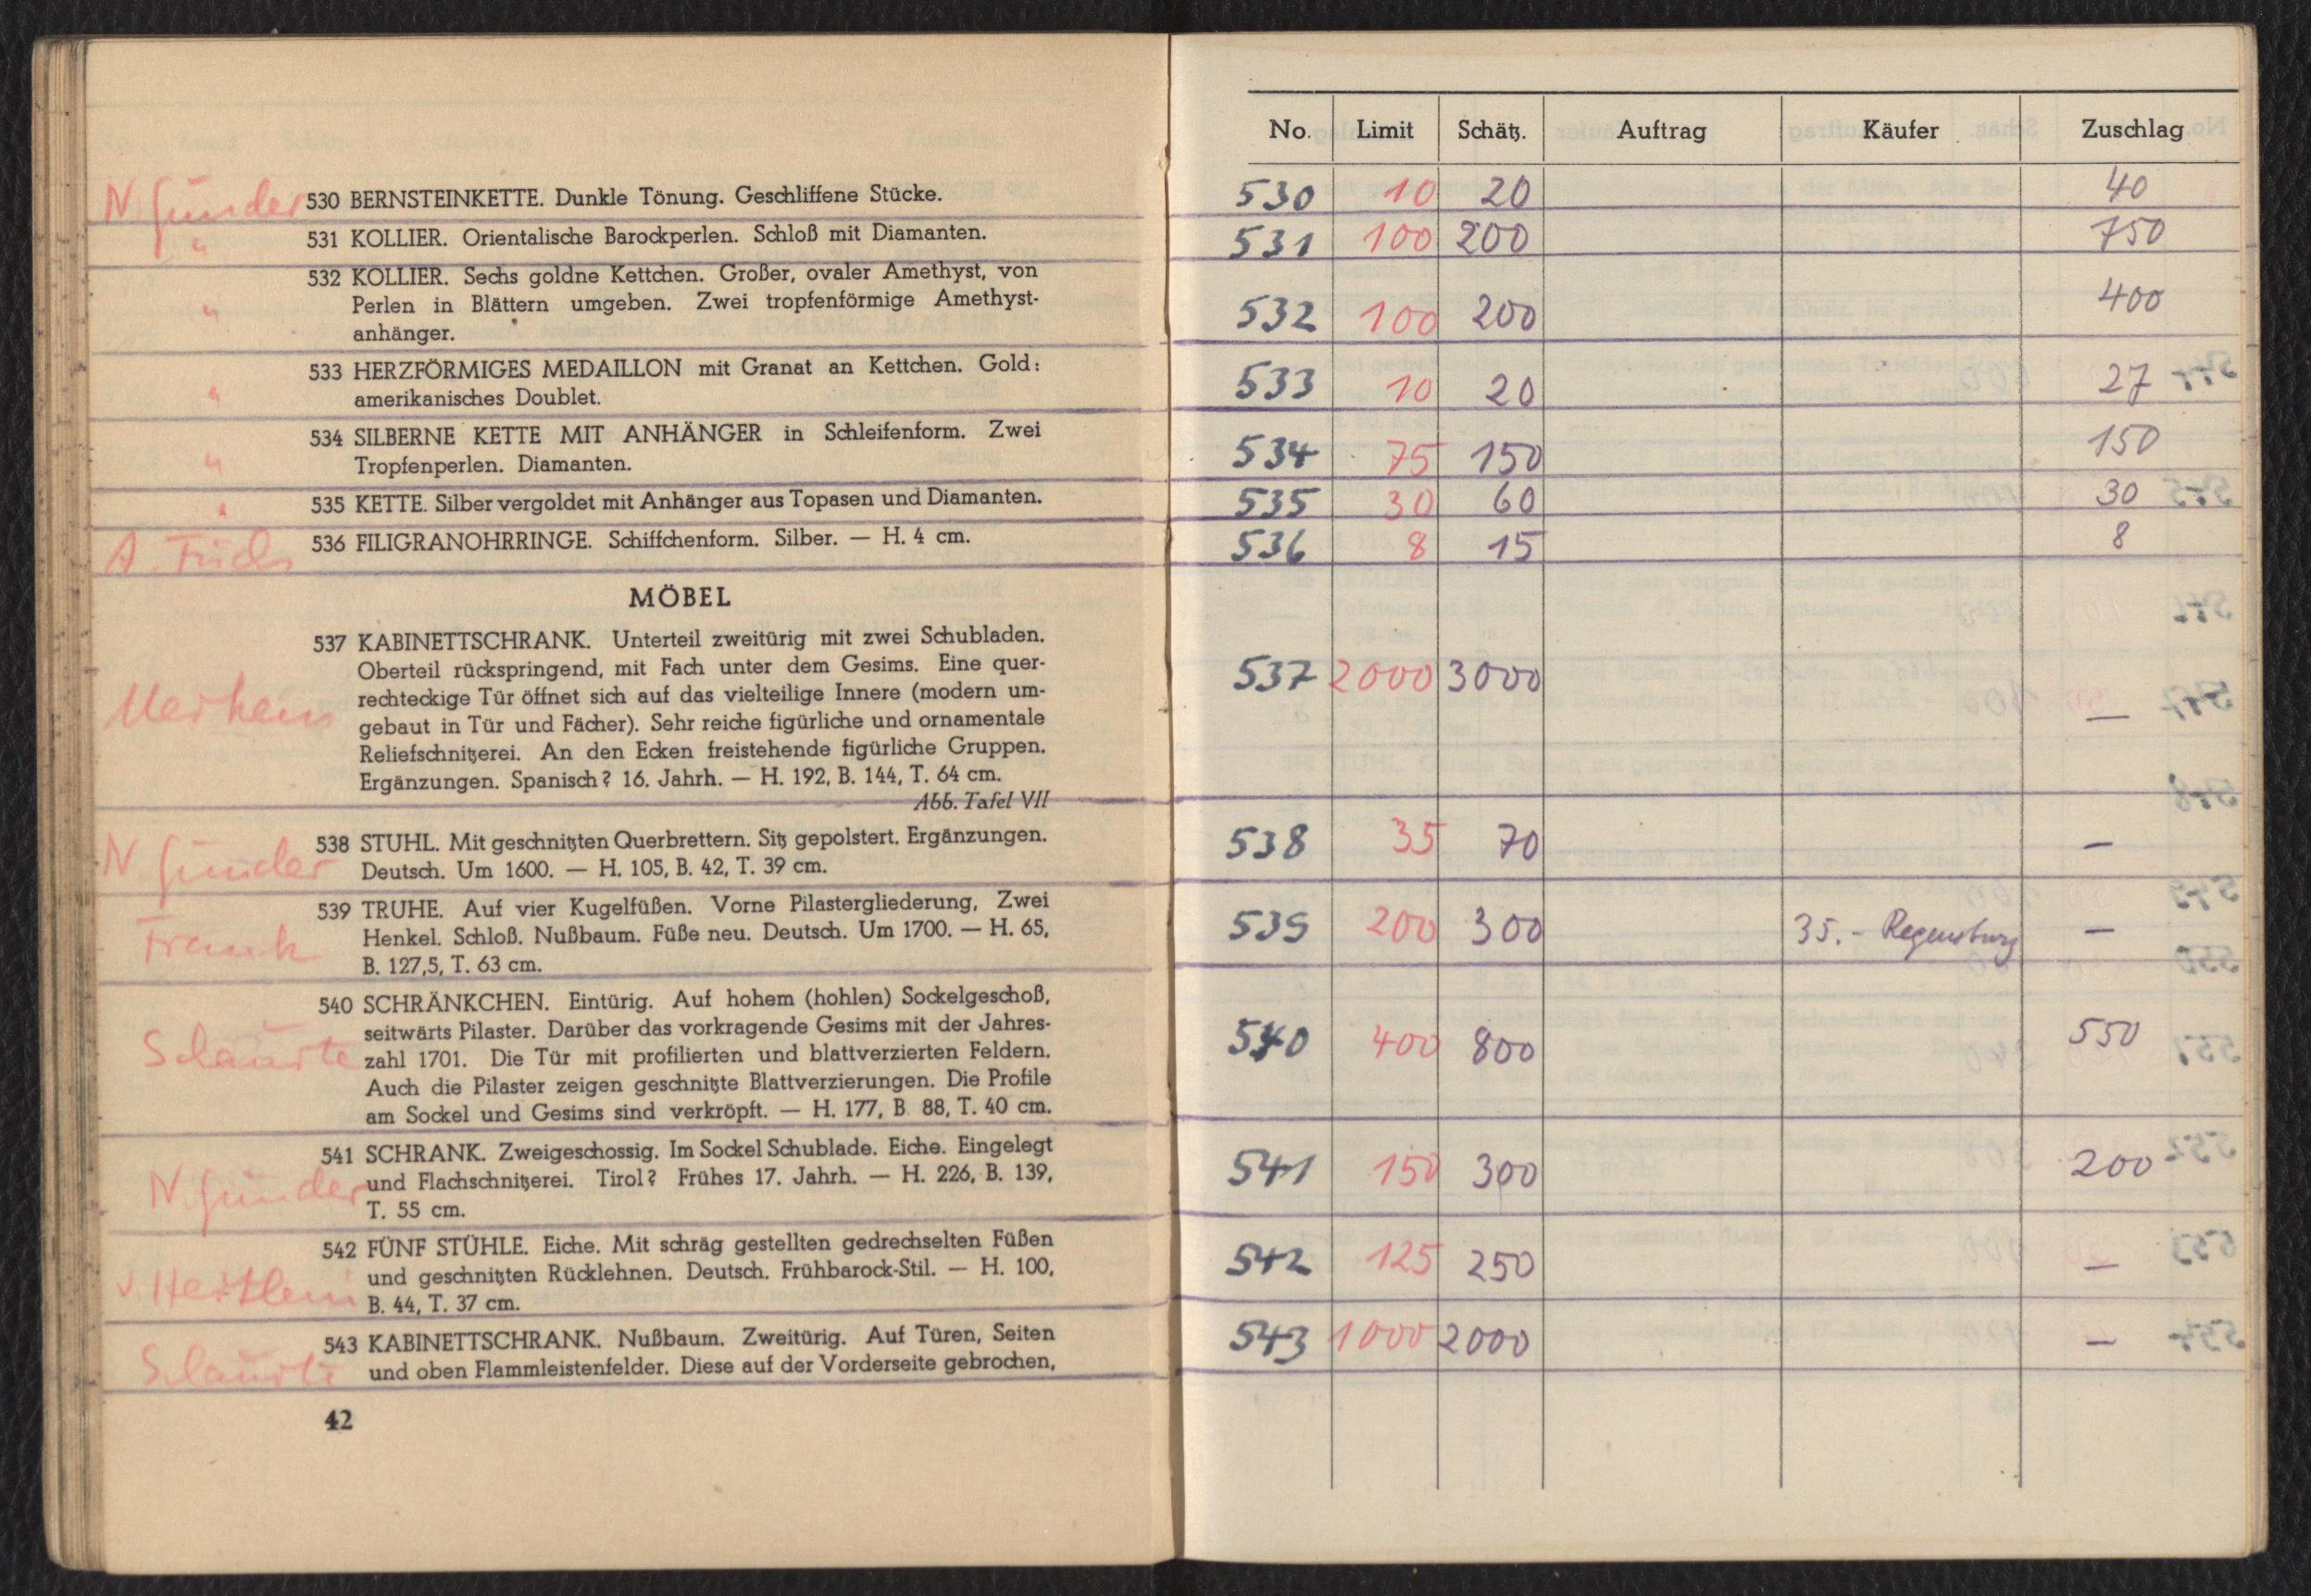 N. Günder 530 BERNSTEINKETTE. Dunkle Tönung. Geschliffene Stücke.
" 531 KOLLIER. Orientalische Barockperlen. Schloß mit Diamanten.
532 KOLLIER. Sechs goldne Kettchen. Großer, ovaler Amethyst, von
" Perlen in Blättern umgeben. Zwei tropfenförmige Amethyst-
anhänger.
533 HERZFÖRMIGES MEDAILLON mit Granat an Kettchen. Gold:
" amerikanisches Doublet.
534 SILBERNE KETTE MIT ANHÄNGER in Schleifenform. Zwei
" Tropfenperlen. Diamanten.
" 535 KETTE. Silber vergoldet mit Anhänger aus Topasen und Diamanten.
A. Fuchs 536 FILIGRANOHRRINGE. Schiffchenform. Silber. — H. 4 cm.
MÖBEL
537 KABINETTSCHRANK. Unterteil zweitürig mit zwei Schubladen.
Oberteil rückspringend, mit Fach unter dem Gesims. Eine quer-
rechteckige Tür öffnet sich auf das vielteilige Innere (modern um-
gebaut in Tür und Fächer). Sehr reiche figürliche und ornamentale
Reliefschnitzerei. An den Ecken freistehende figürliche Gruppen.
Ergänzungen. Spanisch? 16. Jahrh. — H. 192, B. 144, T. 64 cm.
Abb. Tafel VII
N. Günder 538 STUHL. Mit geschnitzten Querbrettern. Sitz gepolstert. Ergänzungen.
Deutsch. Um 1600. — H. 105, B. 42, T. 39 cm.
539 TRUHE. Auf vier Kugelfüßen. Vorne Pilastergliederung, Zwei
Frank Henkel. Schloß. Nußbaum. Füße neu. Deutsch. Um 1700. — H. 65,
B. 127,5, T. 63 cm.
540 SCHRÄNKCHEN. Eintürig. Auf hohem (hohlen) Sockelgeschoß,
seitwärts Pilaster. Darüber das vorkragende Gesims mit der Jahres-
zahl 1701. Die Tür mit profilierten und blattverzierten Feldern.
Auch die Pilaster zeigen geschnitzte Blattverzierungen. Die Profile
am Sockel und Gesims sind verkröpft. — H. 177, B. 88, T. 40 cm.
541 SCHRANK. Zweigeschossig. Im Sockel Schublade. Eiche. Eingelegt
N. Günder und Flachschnitzerei. Tirol? Frühes 17. Jahrh. — H. 226, B. 139,
T. 55 cm.
542 FÜNF STÜHLE. Eiche. Mit schräg gestellten gedrechselten Füßen
und geschnitzten Rücklehnen. Deutsch. Frühbarock-Stil. — H. 100,
v. Hertlein B. 44, T. 37 cm.
543 KABINETTSCHRANK. Nußbaum. Zweitürig. Auf Türen, Seiten
und oben Flammleistenfelder. Diese auf der Vorderseite gebrochen,
42
No. Limit Schätz. Auftrag Käufer Zuschlag
530 10 20 40
531 100 200 750
532 100 200 400
533 10 20 27
534 75 150 150
535 30 60 30
536 8 15 8
537 2000 3000 —
538 35 70 —
539 200 300 35.- Regensburg —
540 400 800 550
541 150 300 200
542 125 250 —
543 1000 2000 —